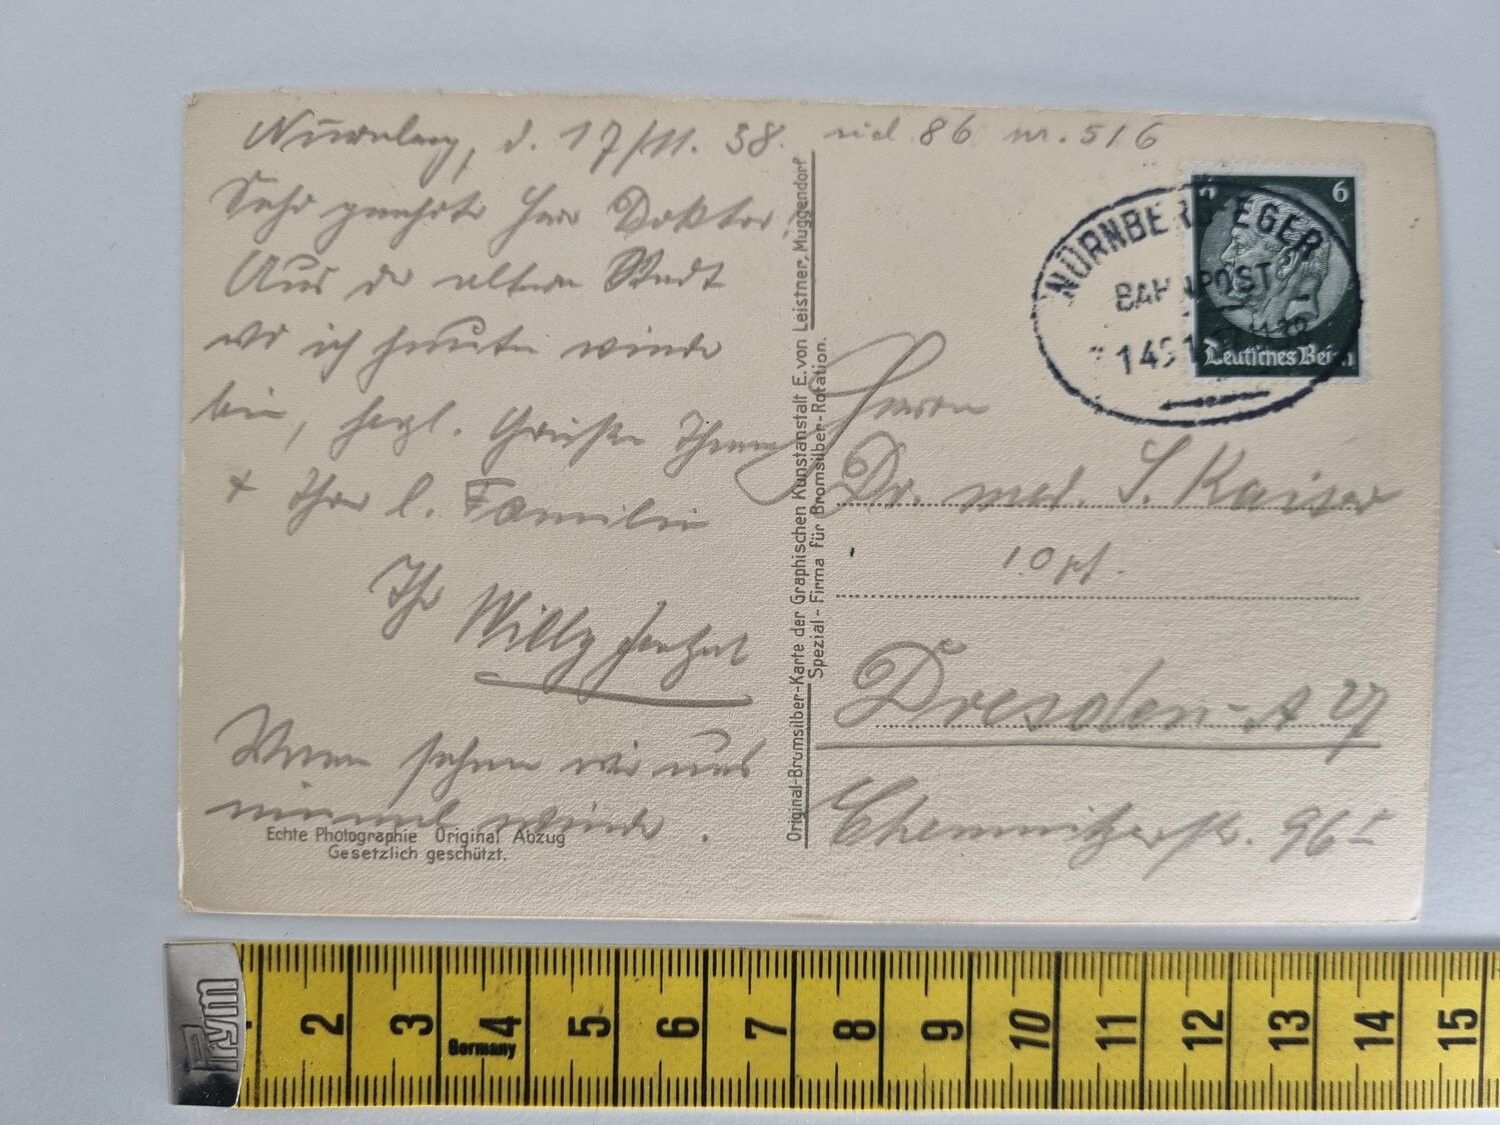 Nürnberg, d. 17/11. 38.
86 nr. 516
Sehr geehrter Herr Doktor!
Aus der alten Stadt
wo ich heute wieder
bin, herzl. Grüße Ihnen
+ Ihrer l. Familie
Ihr Willy
Wann sehen wir uns
einmal wieder.
Echte Photographie Original Abzug
Gesetzlich geschützt.
Original-Bromsilber-Karte der Graphischen Kunstanstalt E. von Leistner, Muggendorf
Spezial-Firma für Bromsilber-Rotation.
NÜRNBERG EGER
BAHNPOST
6
Deutsches Reich
Herrn
Dr. med. S. Kaiser
10 pf.
Dresden-A 27
Chemnitzerstr. 96
Prym
2 3 4 5 6 7 8 9 10 11 12 13 14 15
Germany